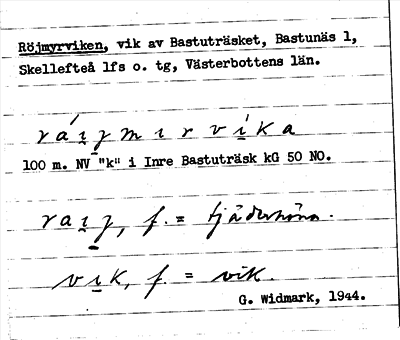 Röjmyrviken, vik av Bastuträsket, Bastunäs 1,
Skellefteå lfs o. tg, Västerbottens län.
ráı̯ȷmırvı̯́ka
100 m. NV "k" i Inre Bastuträsk kG 50 NO.
raı̯ȷ, f. = tjäderhöna.
vı̯k, f. = vik.
G. Widmark, 1944.